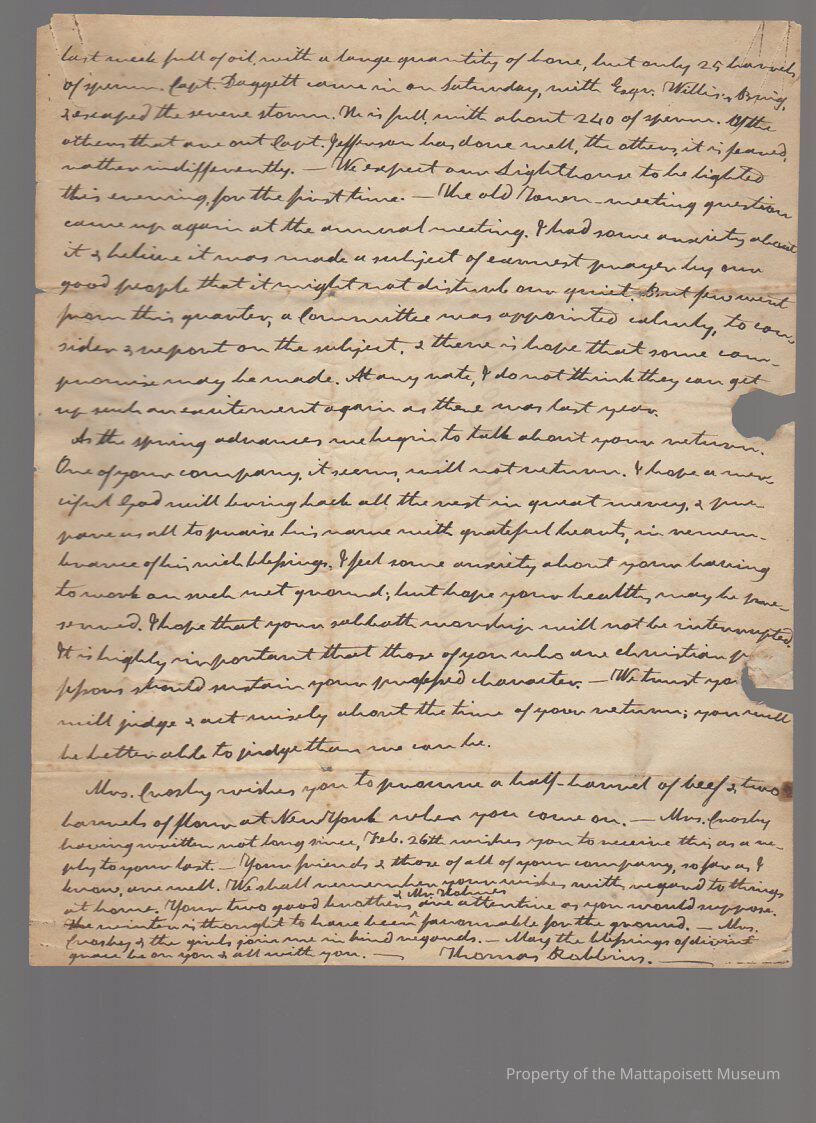 last week full of oil, with a large quantity of bone, but only 25 barrels
of sperm. Capt. Daggett came in on Saturday, with Esqr. Willis's Brig,
& escaped the severe storm. He is full, with about 240 of sperm. Of the
others that are out Capt. Jefferson has done well, the others, it is feared,
rather indifferently. — We expect our Lighthouse to be lighted
this evening, for the first time. — The old Town-meeting question
came up again at the annual meeting. I had some anxiety about
it & believe it was made a subject of earnest prayer by our
good people that it might not disturb our quiet. But few went
from this quarter, a Committee was appointed calmly, to con-
sider & report on the subject, & there is hope that some com-
promise may be made. At any rate, I do not think they can get
up such an excitement again as there was last year.
As the spring advances we begin to talk about your return.
One of your company, it seems, will not return. I hope a mer-
ciful God will bring back all the rest in great mercy, & pre-
pare us all to praise his name with grateful hearts, in remem-
brance of his rich blessings. I feel some anxiety about your having
to work on such wet ground; but hope your healths may be pre-
served. I hope that your sabbath worship will not be interrupted.
It is highly important that those of you who are christian p
fessors should sustain your professed character. — We trust yo
will judge & act wisely about the time of your return; you will
be better able to judge than we can be.
Mrs. Crosby wishes you to procure a half-barrel of beef & two
barrels of flour at New York when you come on. — Mrs. Crosby
having written not long since, Feb. 26th wishes you to receive this as a re-
ply to your last. — Your friends & those of all of your company, so far as I
know, are well. We shall remember your wishes with regard to things
at home. Your two good brothers & Mr. Holmes are attentive as you would suppose.
The winter is thought to have been favourable for the ground. — Mrs.
Crosby & the girls join me in kind regards. — May the blessings of divine
grace be on you & all with you. — Thomas Robbins. —
Property of the Mattapoisett Museum